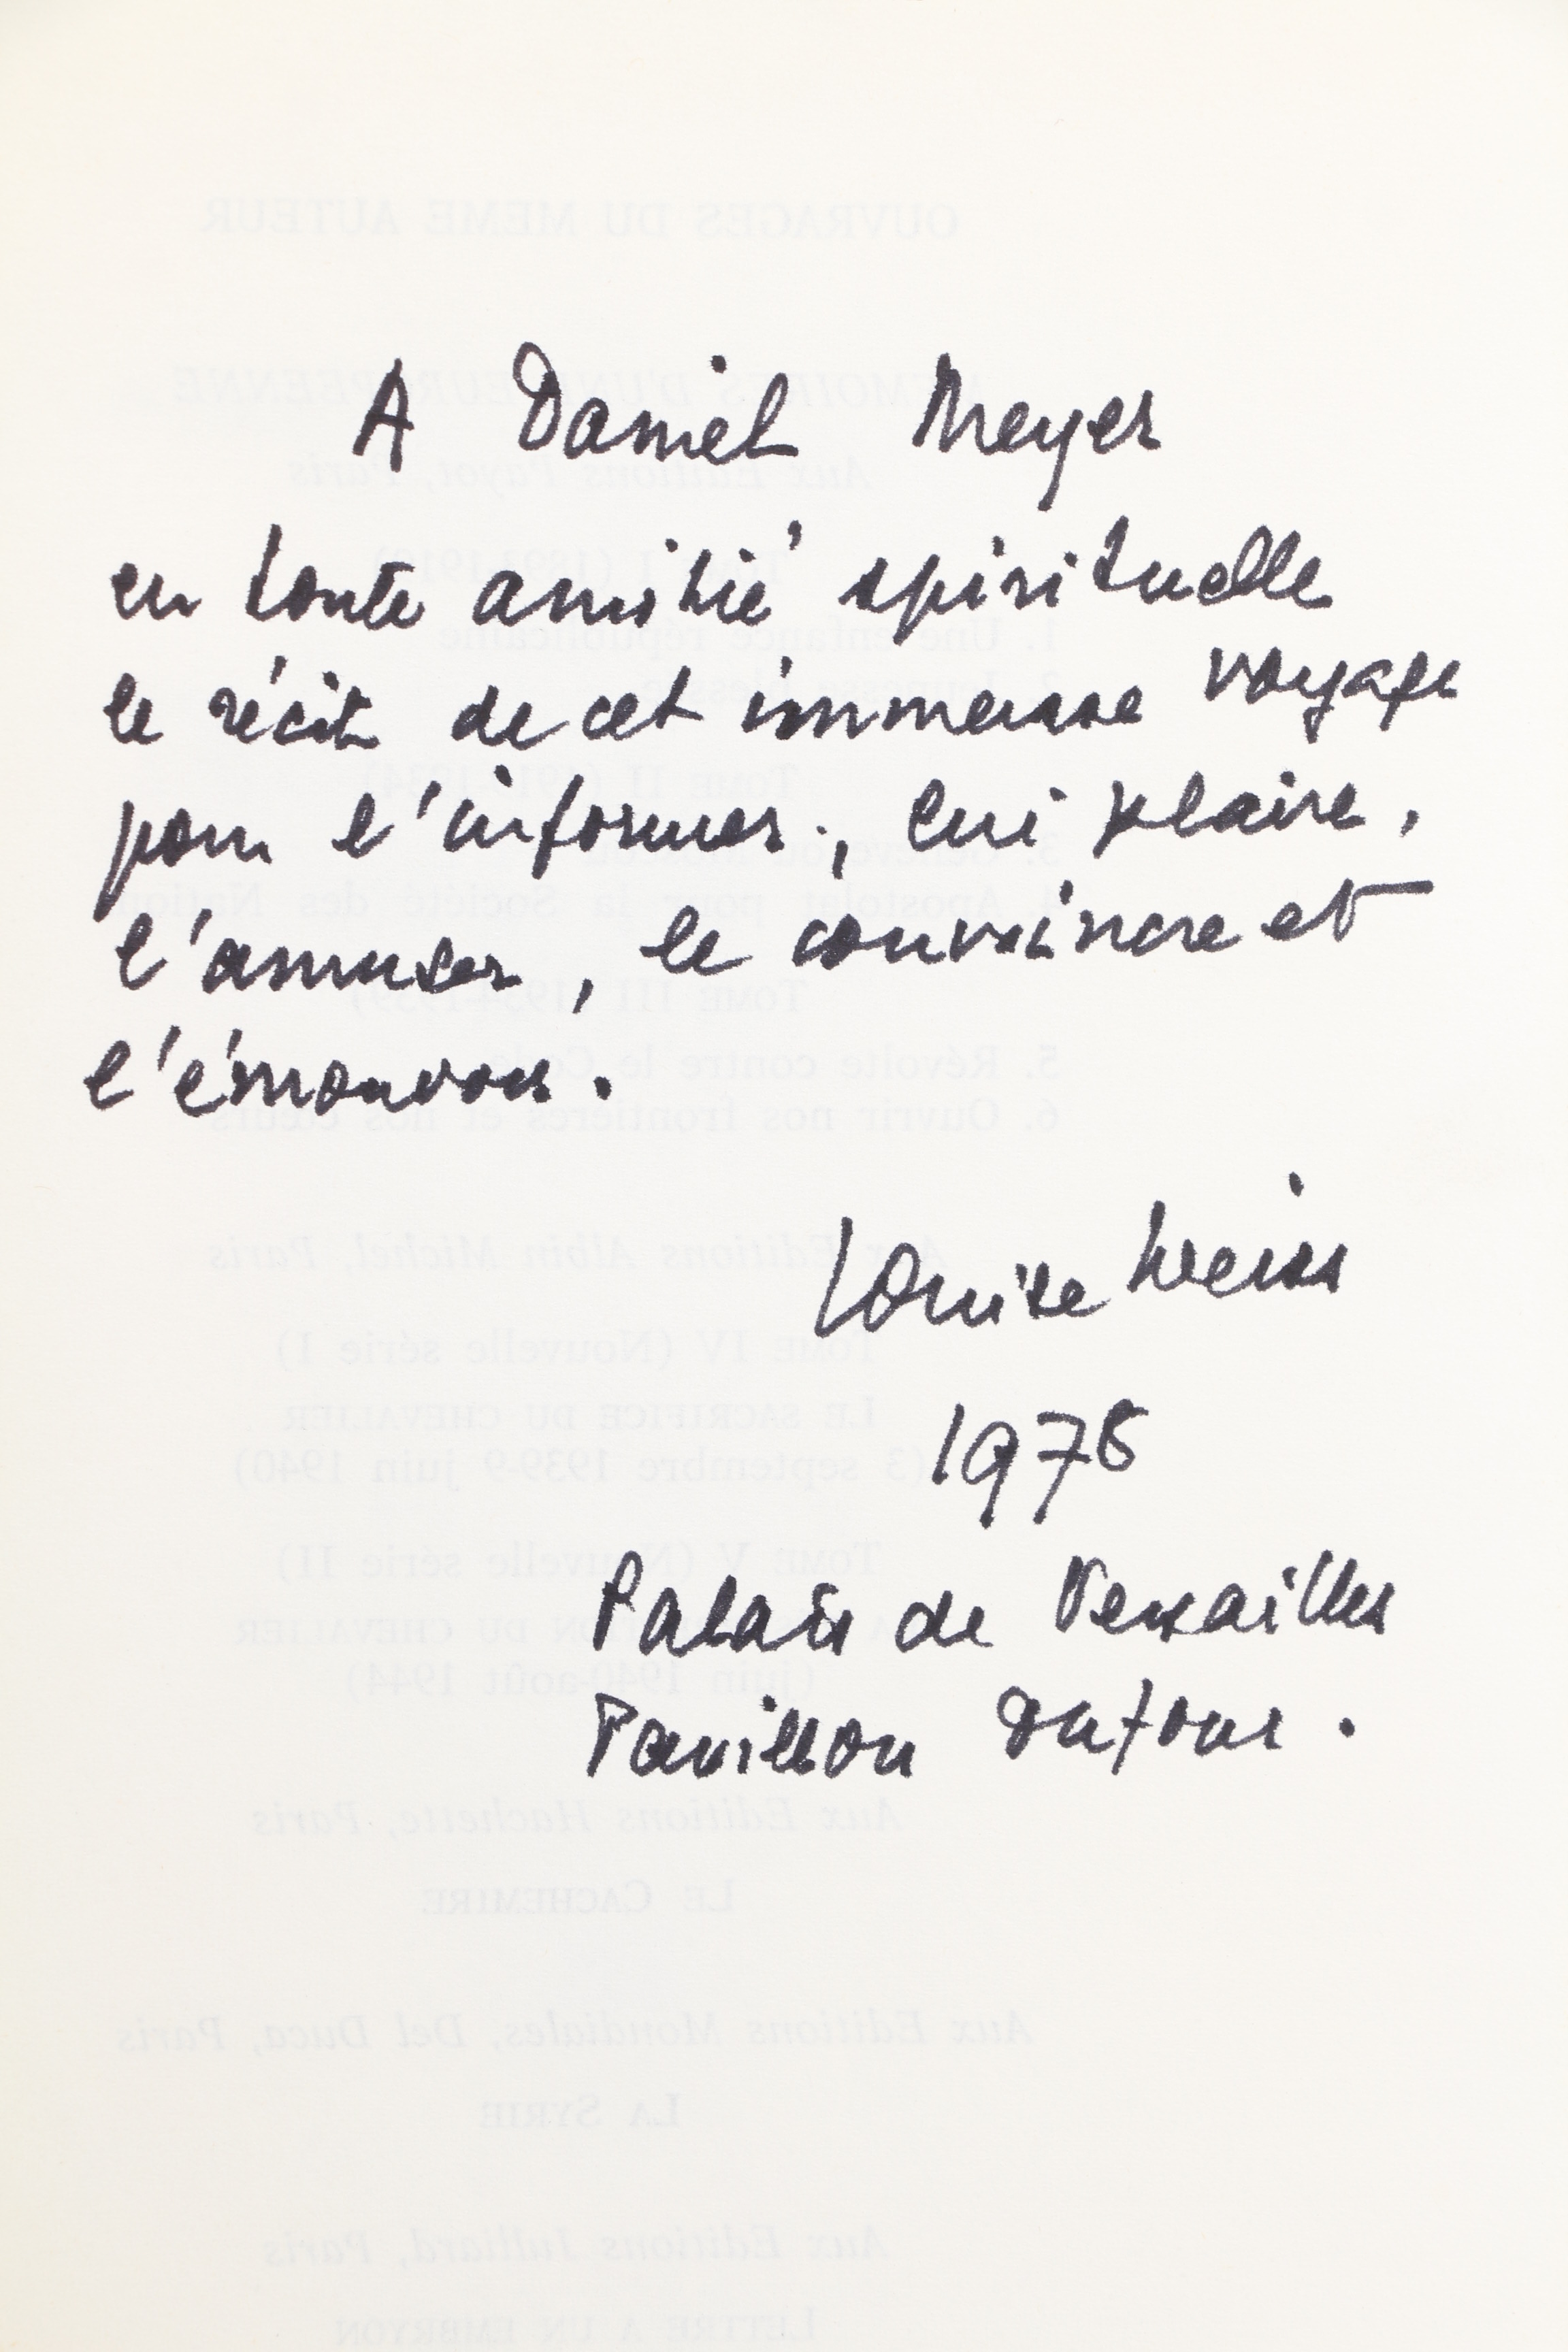 A Daniel Meyer
en toute amitié spirituelle
le récit de cet immense voyage
pour l'informer, lui plaire,
l'amuser, le convaincre et
l'émouvoir.
Louise Weiss
1978
Palais de Versailles
Pavillon Dufour.
OUVRAGES DU MEME AUTEUR
MEMOIRES D'UNE EUROPEENNE
Aux Editions Payot, Paris
TOME I (1893-1919)
1. Une enfance républicaine
TOME II (1919-1934)
4. Apostolat pour la Société des Nations
TOME III (1934-1939)
5. Révolte contre le
6. Ouvrir nos frontières et nos cœurs
Aux Editions Albin Michel, Paris
TOME IV (Nouvelle série I)
LE SACRIFICE DU CHEVALIER
(3 septembre 1939-9 juin 1940)
TOME V (Nouvelle série II)
DU CHEVALIER
(juin 1940-août 1944)
Aux Editions Hachette, Paris
LE CACHEMIRE
Aux Editions Mondiales, Del Duca, Paris
LA SYRIE
Aux Editions Julliard, Paris
LETTRE A UN EMBRYON